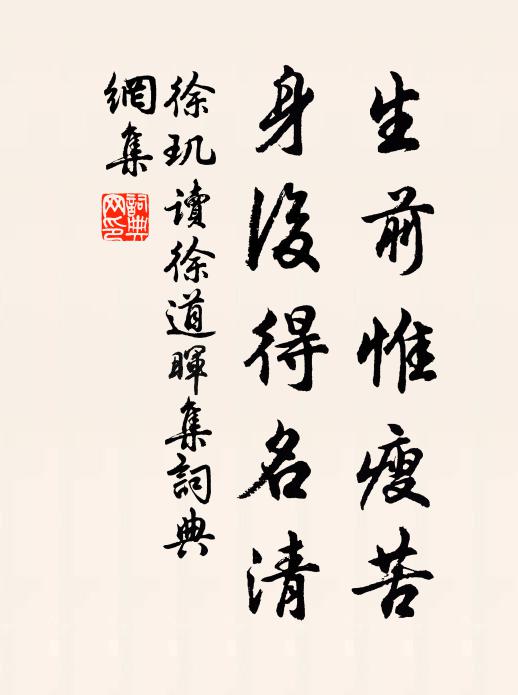 生前惟瘦苦
身後得名清
徐玑讀徐道暉集詞典
網集
詞典
网印